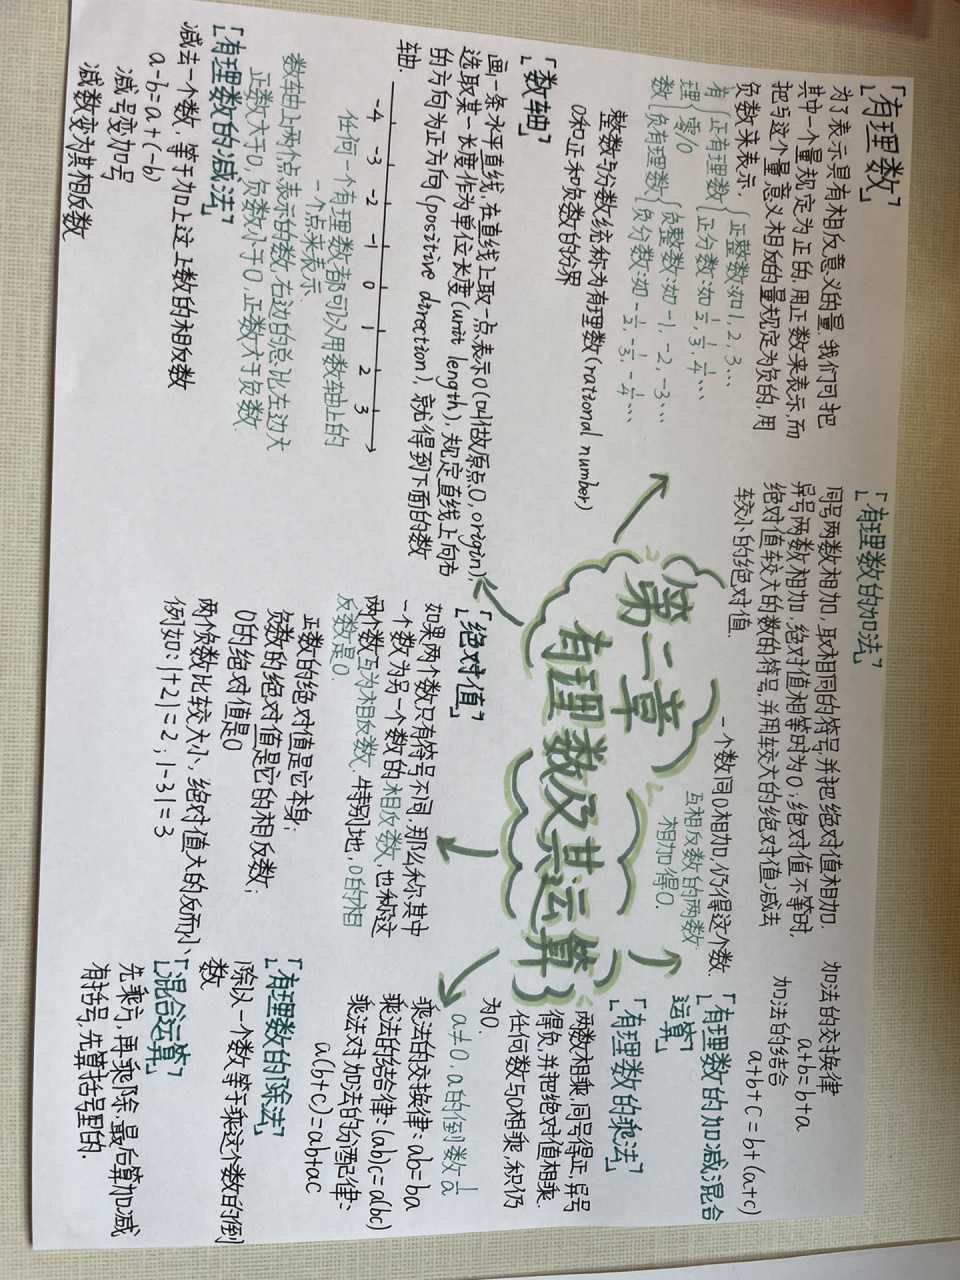 「有理数」
为了表示具有相反意义的量,我们可把
其中一个量规定为正的,用正数来表示,而
把与这个量意义相反的量规定为负的,用
负数来表示.
有理数 { 正有理数 { 正整数:如1,2,3…
正分数:如1/2,1/3,1/4…
零:0
负有理数 { 负整数:如-1,-2,-3…
负分数:如-1/2,-1/3,-1/4…
整数与分数统称为有理数(rational number)
0和正和负数的分界
「数轴」
画一条水平直线,在直线上取一点表示0(叫做原点0,origin),
选取某一长度作为单位长度(unit length),规定直线上向右
的方向为正方向(positive direction),就得到下面的数
轴.
-4 -3 -2 -1 0 1 2 3
任何一个有理数都可以用数轴上的
一个点来表示.
数轴上两个点表示的数,右边的总比左边大
正数大于0,负数小于0,正数大于负数.
「有理数的减法」
减去一个数,等于加上这上数的相反数
a-b=a+(-b)
减号变加号
减数变为其相反数
第二章
有理数及其运算
「有理数的加法」
同号两数相加,取相同的符号,并把绝对值相加.
异号两数相加,绝对值相等时为0;绝对值不等时,
绝对值较大的数的符号,并用较大的绝对值减去
较小的绝对值.
一个数同0相加,仍得这个数.
互相反数的两数
相加得0.
加法的交换律
a+b=b+a
加法的结合
a+b+c=b+(a+c)
「绝对值」
如果两个数只有符号不同,那么称其中
一个数为另一个数的相反数,也称这
两个数互为相反数.特别地,0的相
反数是0.
正数的绝对值是它本身;
负数的绝对值是它的相反数;
0的绝对值是0
两个负数比较大小,绝对值大的反而小
例如:|+2|=2;|-3|=3
「有理数的加减混合
运算」
「有理数的乘法」
两数相乘,同号得正,异号
得负,并把绝对值相乘.
任何数与0相乘,积仍
为0.
a≠0,a的倒数1/a
乘法的交换律:ab=ba
乘法的结合律:(ab)c=a(bc)
乘法对加法的分配律:
a(b+c)=ab+ac
「有理数的除法」
除以一个数等于乘这个数的倒
数
「混合运算」
先乘方,再乘除,最后算加减
有括号,先算括号里的.